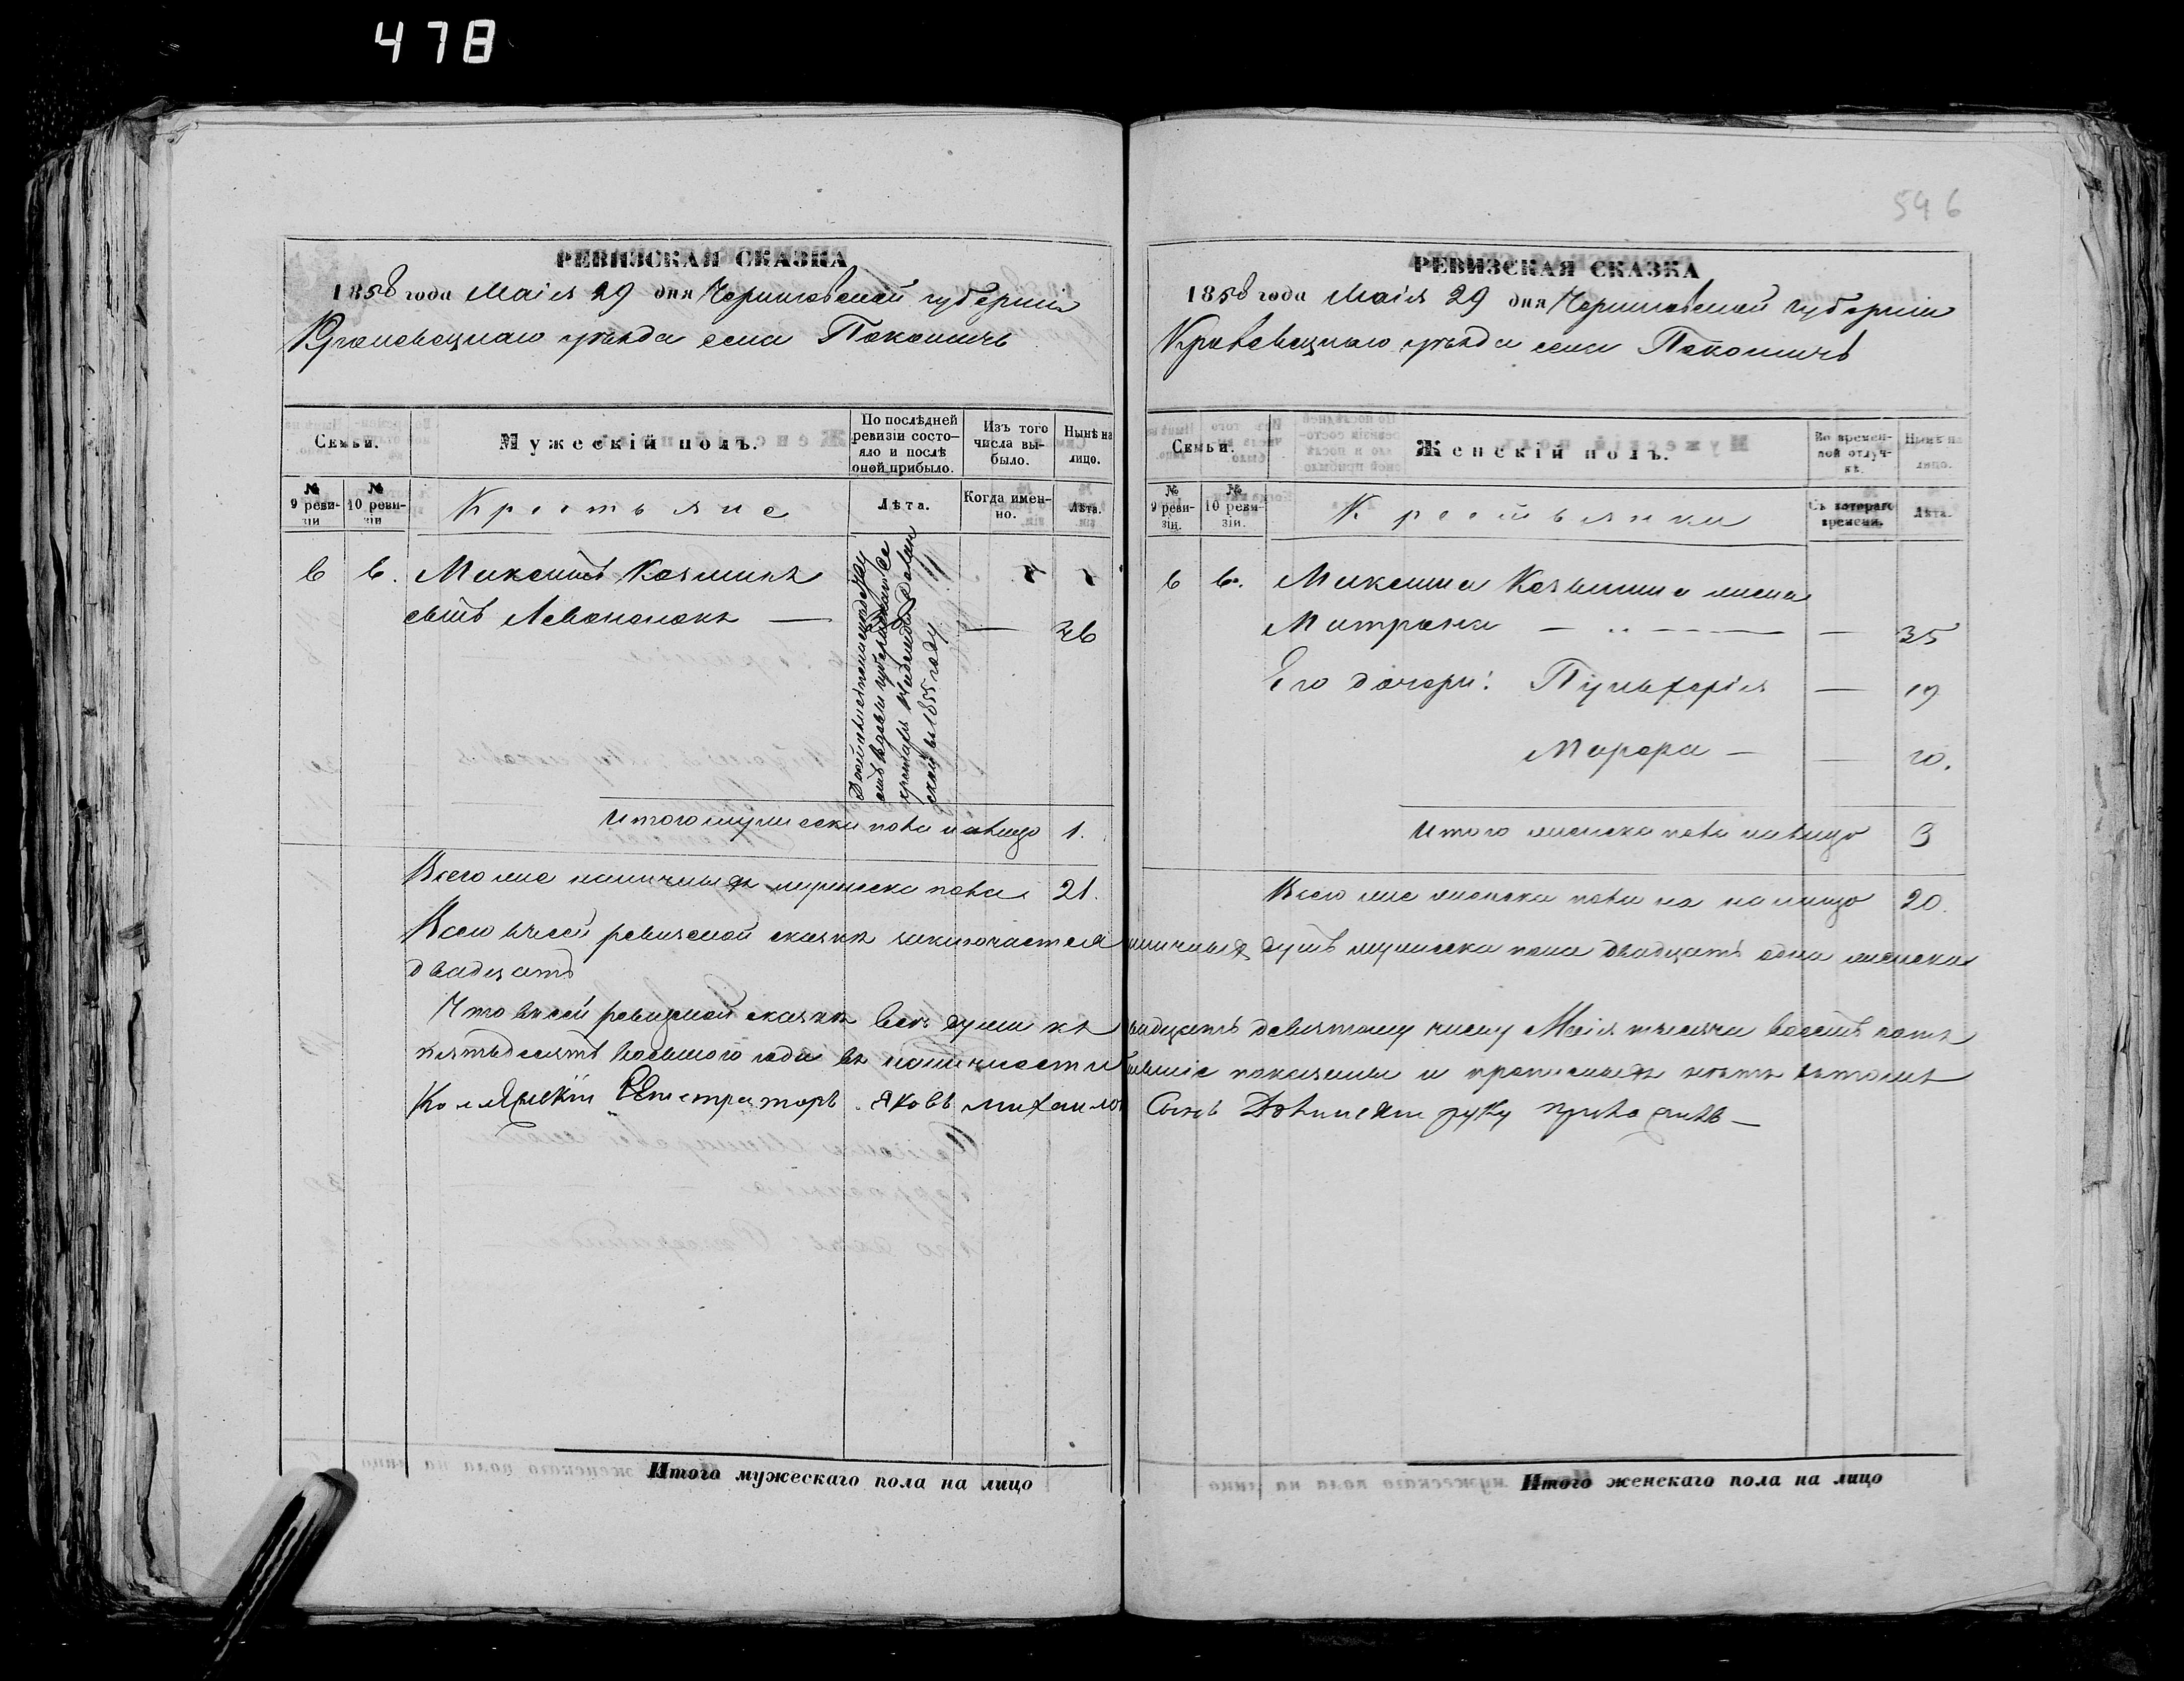 478
546
РЕВИЗСКАЯ СКАЗКА
1858 года Маія 29 дня Черниговской губерніи
Кролевецкаго уѣзда села Покошичь
Семьи.
Мужескій полъ.
По послѣдней ревизіи состояло и послѣ оной прибыло.
Изъ того числа выбыло.
Нынѣ на лицо.
№ 9 ревизіи
№ 10 ревизіи
Крестьяне
Лѣта.
Когда именно.
Лѣта.
6 6. Максимъ Козминъ
сынъ — — 36
въ 1855 году
Итого мужеска пола на лицо 1.
Всего мужеска пола 21.
РЕВИЗСКАЯ СКАЗКА
1858 года Маія 29 дня Черниговской губерніи
Кролевецкаго уѣзда села Покошичь
Семьи.
Женскій полъ.
Во временной отлучкѣ.
Нынѣ на лицо.
№ 9 ревизіи.
№ 10 ревизіи.
Крестьянки
Съ котораго времени.
Лѣта.
6 6. Максима Козмина жена
Матрона — — 35
Его дочери: Пульхерія — 19
Марфа — — 10.
Итого женска пола на лицо 3
Всего женска пола на лицо 20.
Всего въ сей ревизской сказкѣ заключается наличныхъ душъ мужеска пола двадцать одна женска
двадцать
Что въ сей ревизской сказкѣ всѣ души къ двадцать девятому числу Маія тысяча восемь сотъ
пятьдесятъ восьмого года въ наличности бывшіе показаны и прописныхъ нѣтъ въ томъ
Коллежскій Регистраторъ Яковъ Михайловъ Сынъ руку приложилъ —
Итого мужескаго пола на лицо
Итого женскаго пола на лицо